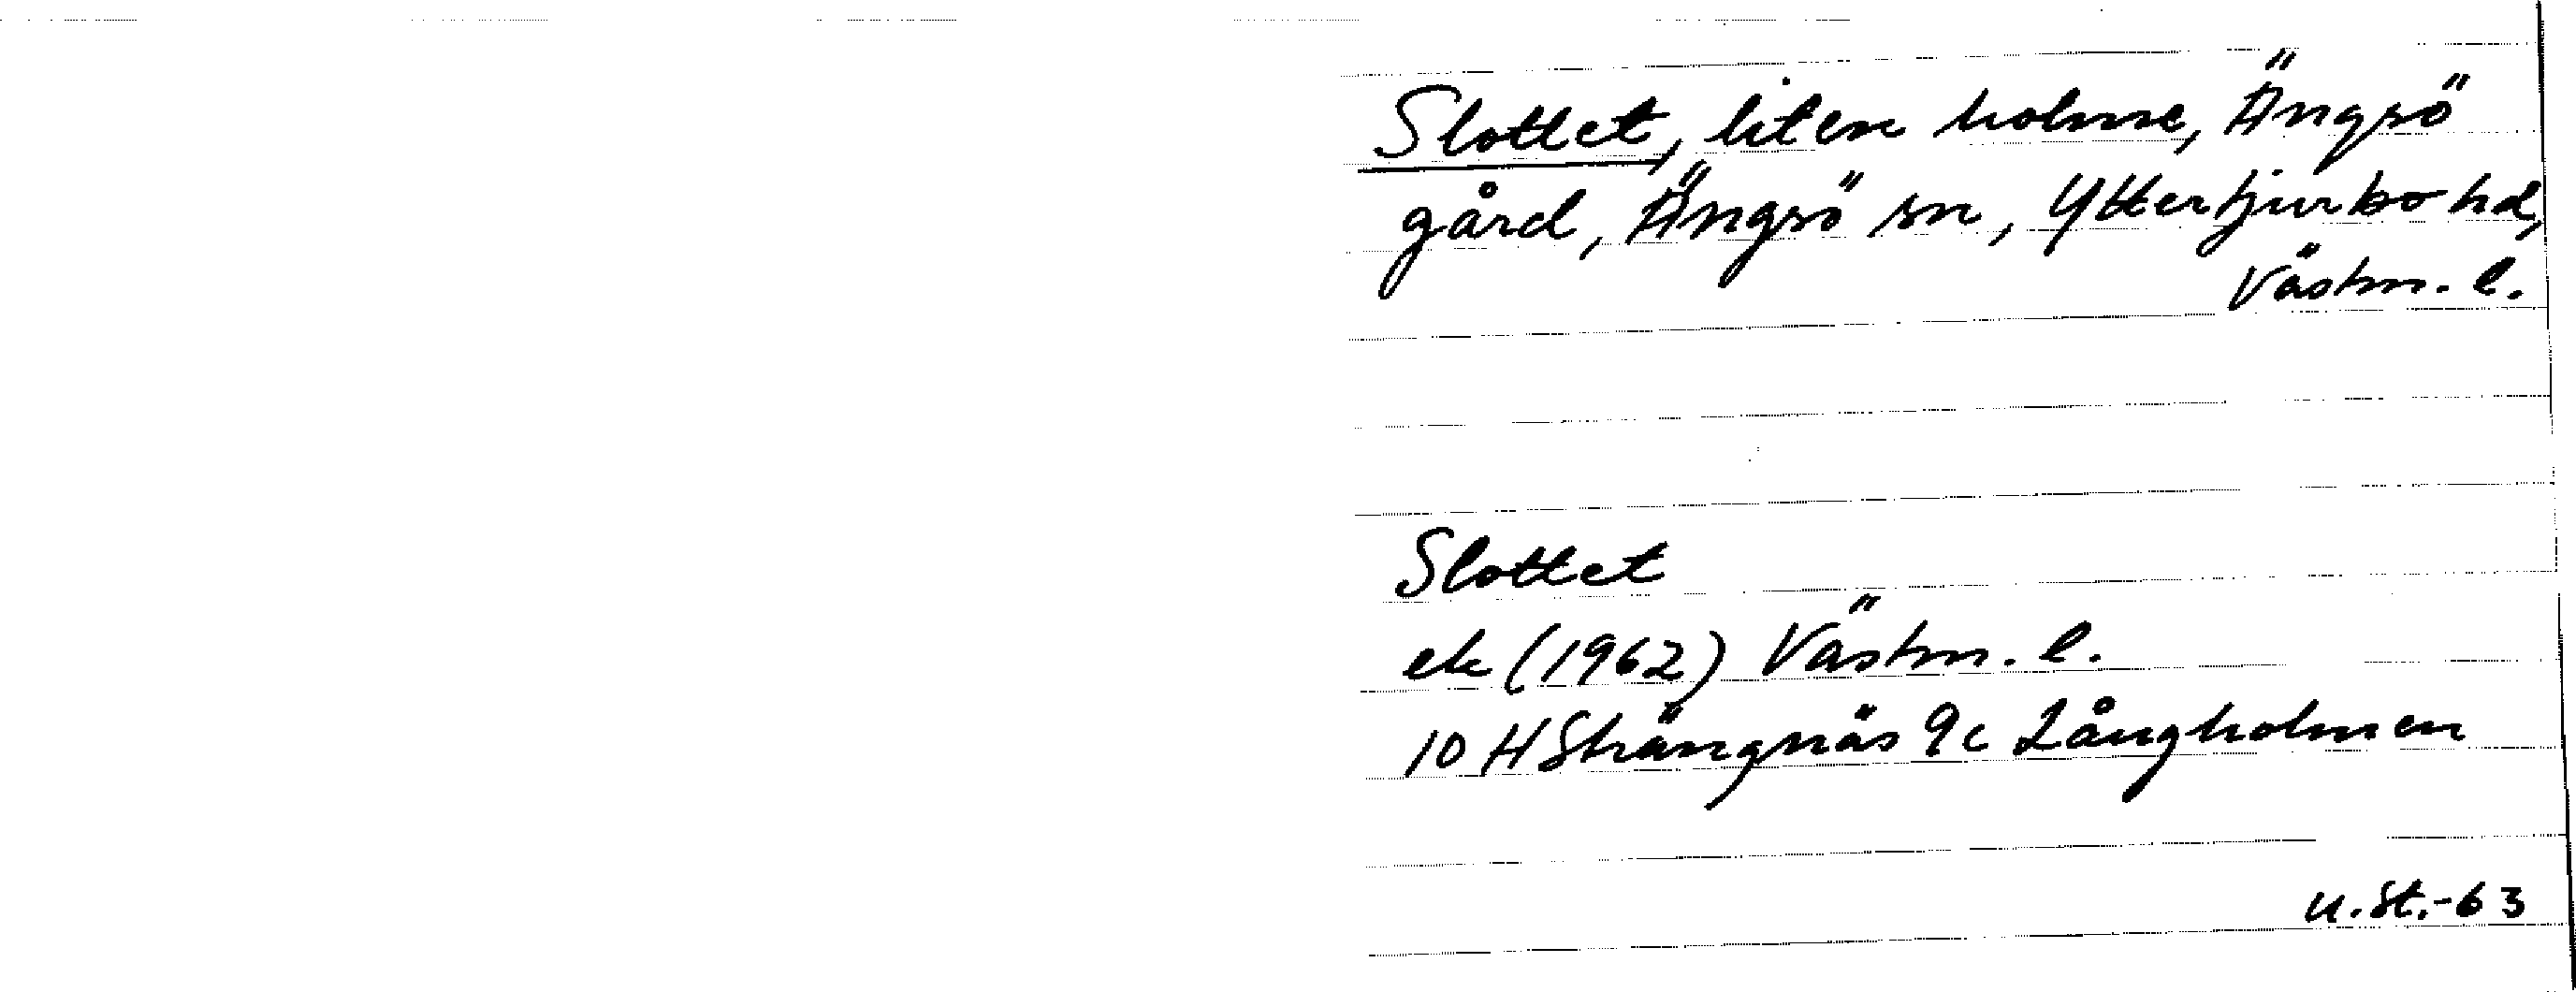 Slottet, liten holme, Ängsö
gård, Ängsö sn, Yttertjurbo hd,
Västm. l.
Slottet
ek (1962) Västm. l.
10 H Strängnäs 9c Långholmen
U. St. -63